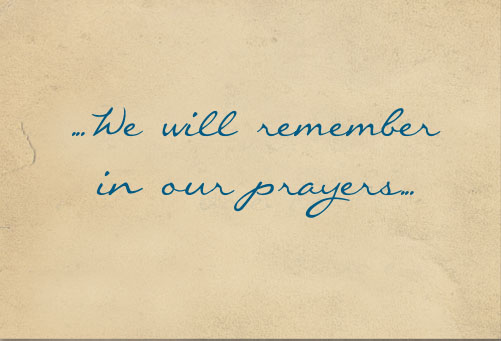 ...We will remember
in our prayers...